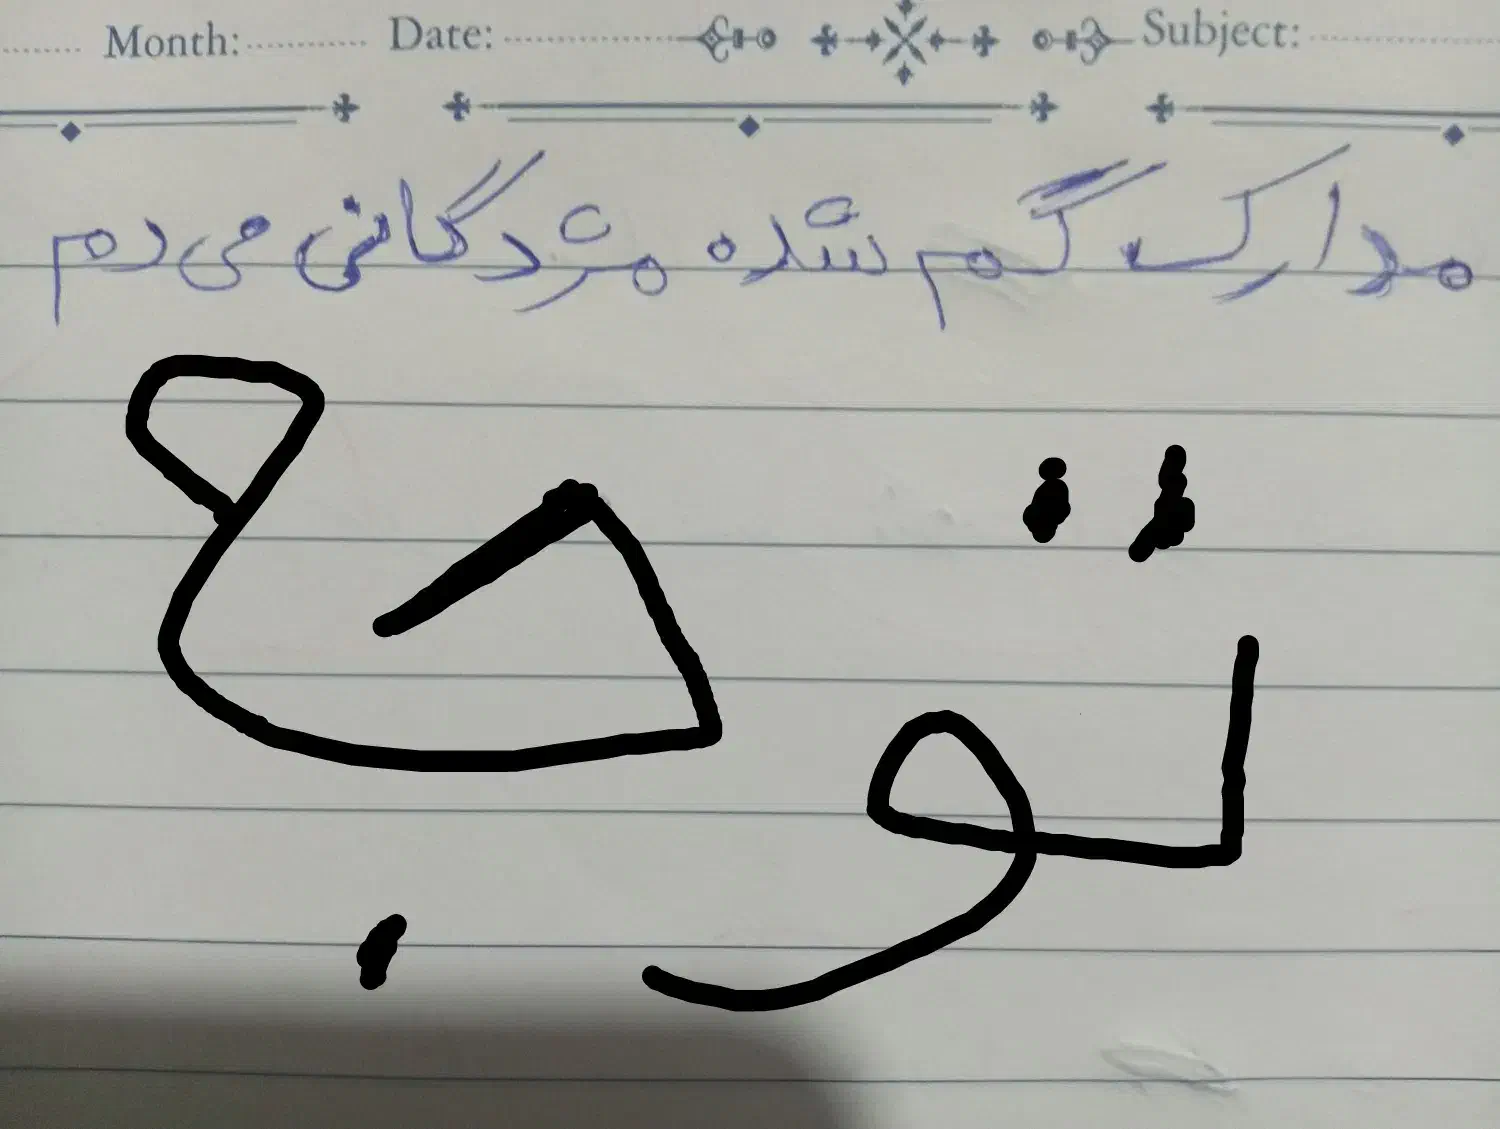 Month: Date: Subject:
مدارک گم شده مژدگانی می دم
توجه